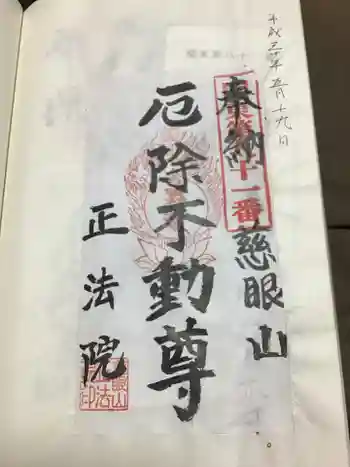 平成三十年五月十九日
奉納
十一番
慈眼山
厄除不動尊
正法院